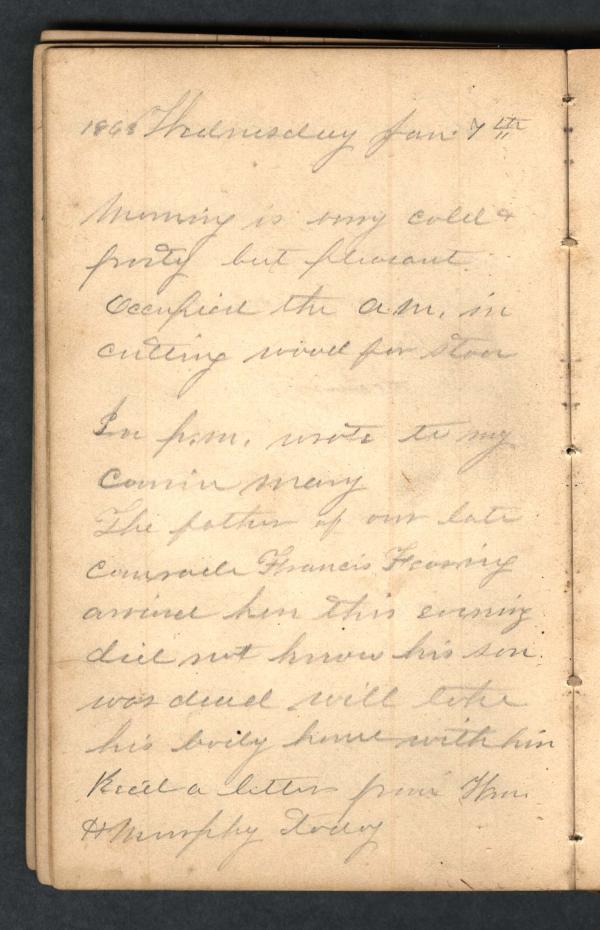 1863 Wednesday Jan 7th
Morning is very cold &
frosty but pleasant
Occupied the a.m. in
cutting wood for stove
In p.m. wrote to my
Cousin Mary
The father of our late
comrade Francis
arrived here this evening
did not know his son
was dead will take
his body home with him
Rec'd a letter from Wm
H Murphy today